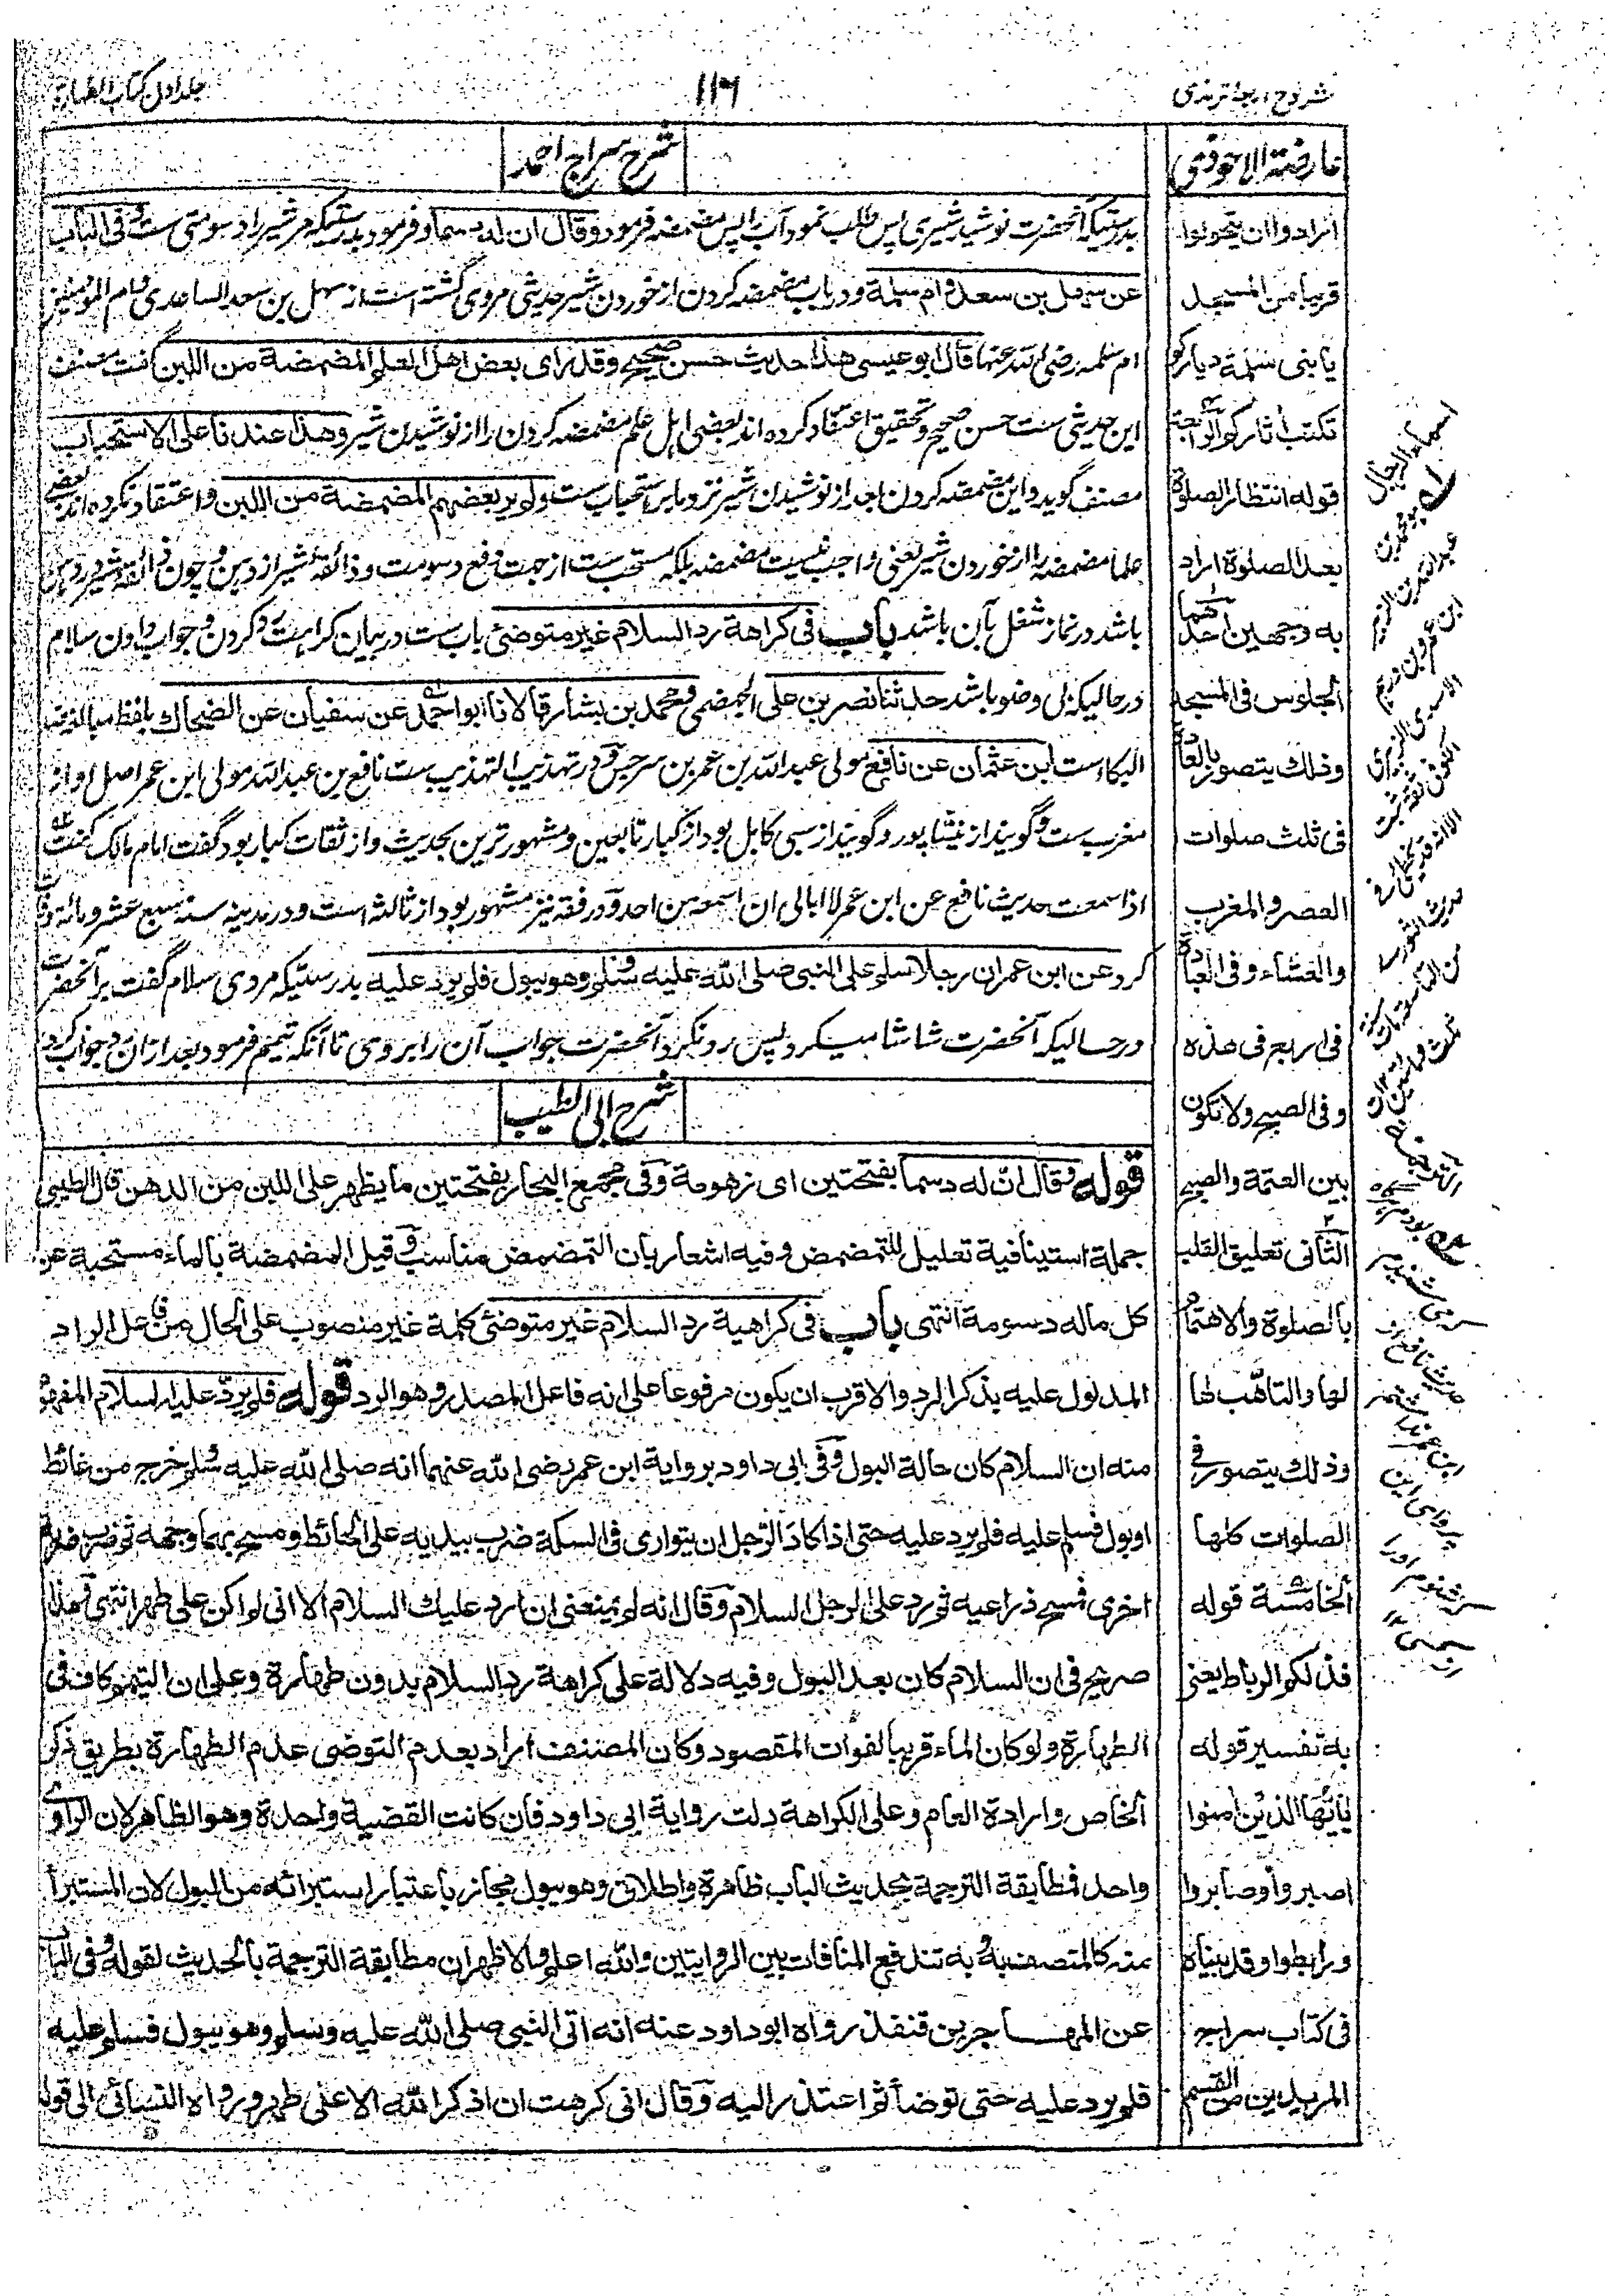 شروح اربعۂ ترمذی
۱۱۶
جلد اول کتاب الطهارة
عارضة الاحوذی
ارادوا ان يتحولوا
قريبا من المسجد
يا بنی سلمة دياركم
تكتب آثاركم الرابعة
قوله انتظار الصلوة
بعد الصلوة اراد
به وجهين احدهما
الجلوس فی المسجد
وذلك يتصور بالعادة
فی ثلث صلوات
العصر والمغرب
والعشاء وفی العبادة
فی اربع فی هذه
وفی الصبح ولا تكون
بين العتمة والصبح
الثانی تعليق القلب
بالصلوة والاهتمام
لها والتاهّب لها
وذلك يتصور فی
الصلوات كلها
الخامسة قوله
فذلكم الرباط يعنی
به تفسير قوله
يايّها الذين امنوا
اصبروا وصابروا
ورابطوا وقد بيناه
فی كتاب سراج
المريدين من القسم
شرح سراج احمد
بدرستیکه آنحضرت نوشید شیری پس طلب نمود آب پس مضمضه فرمود وقال ان له دسما و فرمود بدرستیکه مر شیر را دسومتی ست وفی الباب
عن سهل بن سعد وام سلمة و در باب مضمضه کردن از خوردن شیر حدیثی مروی گشته است از سهل بن سعد الساعدی و ام المومنین
ام سلمه رضی الله عنها قال ابو عيسی هذا حديث حسن صحيح وقد رای بعض اهل العلم المضمضة من اللبن گفت مصنف
این حدیثی ست حسن صحیح و تحقیق اعتقاد کرده اند بعضی اہل علم مضمضه کردن را از نوشیدن شیر وهذا عندنا علی الاستحباب
مصنف گوید و این مضمضه کردن بعد از نوشیدن شیر نزد ما بر استحباب ست ولم ير بعضهم المضمضة من اللبن و اعتقاد نکرده اند بعضی
علما مضمضه را از خوردن شیر یعنی واجب نیست مضمضه بلکه مستحب ست از جهت دفع دسومت و ذائقۂ شیر از دهن و چون ذائقۂ شیر در دهن
باشد در نماز شغل بآن باشد باب فی كراهة رد السلام غير متوضئ باب ست در بیان کراہت رد کردن و جواب دادن سلام
در حالیکه بی وضو باشد حدثنا نصر بن علی الجهضمی ومحمد بن بشار قالا نا ابو احمد عن سفيان عن الضحاك بلفظ مبالغه
البکاء ست ابن عثمان عن نافع مولی عبد الله بن عمر بن سرجس و در تهذیب التهذیب ست نافع بن عبد الله مولی ابن عمر اصل او از
مغرب ست و گویند از نیشاپور و گویند از سبی کابل بود از کبار تابعین و مشهورترین بحدیث و از ثقات کبار بود گفت امام مالک کنت
اذا سمعت حديث نافع عن ابن عمر لا ابالی ان اسمعه من احد و در فقه نیز مشهور بود از ثالثه است و در مدینه سنه سبع عشر ومائة وفات
کرد عن ابن عمر ان رجلا سلم علی النبی صلی الله عليه وسلم وهو يبول فلم يرد عليه بدرستیکه مردی سلام گفت بر آنحضرت
در حالیکه آنحضرت شاشا میکرد پس رد نکرد آنحضرت جواب آن را بروی تا آنکه تیمم فرمود بعد از آن رد جواب کرد
شرح ابی الطیب
قوله وقال انّ له دسما بفتحتين ای زهومة وفی مجمع البحار بفتحتين ما يظهر علی اللبن من الدهن قال الطيبی
جملة استينافية تعليل للتمضمض وفيه اشعار بان التمضمض مناسب وقيل المضمضة بالماء مستحبة عن
كل ماله دسومة انتهی باب فی كراهية رد السلام غير متوضئ كلمة غير منصوب علی الحال من فاعل الراد
المدلول عليه بذكر الرد والاقرب ان يكون مرفوعا علی انه فاعل المصدر وهو الرد قوله فلم يردّ عليه السلام المفهوم
منه ان السلام كان حالة البول وفی ابی داود برواية ابن عمر رضی الله عنهما انه صلی الله عليه وسلم خرج من غائط
او بول فسلم عليه فلم يرد عليه حتی اذا كاد الرجل ان يتواری فی السكة ضرب بيديه علی الحائط ومسح بهما وجهه ثم ضرب ضربة
اخری فمسح ذراعيه ثم رد علی الرجل السلام وقال انه لم يمنعنی ان ارد عليك السلام الا انی لم اكن علی طهر انتهی فهذا
صريح فی ان السلام كان بعد البول وفيه دلالة علی كراهة رد السلام بدون طهارة وعلی ان التيمم كاف فی
الطهارة ولو كان الماء قريبا لفوات المقصود وكان المصنف اراد بعدم التوضی عدم الطهارة بطريق ذكر
الخاص وارادة العام وعلی الكراهة دلت رواية ابی داود فان كانت القضية واحدة وهو الظاهر لان الراوی
واحد فمطابقة الترجمة بحديث الباب ظاهرة واطلاق وهو يبول مجاز باعتبار استبرائه من البول لان المستبرأ
منه كالمتصف به وبه تندفع المنافات بين الروايتين والله اعلم والاظهر ان مطابقة الترجمة بالحديث لقوله وفی الباب
عن المهاجر بن قنفذ رواه ابو داود عنه انه اتی النبی صلی الله عليه وسلم وهو يبول فسلم عليه
فلم يرد عليه حتی توضأ ثم اعتذر اليه وقال انی كرهت ان اذكر الله الا علی طهر ورواه النسائی الی قوله
اسماء الرجال
عبد الله بن الزبير
ابن عمرو بن درهم
الاسدی الزبيری
الكوفی ثقة ثبت
الا انه قد يخطئ فی
حديث الثوری
من التاسعة مات سنة